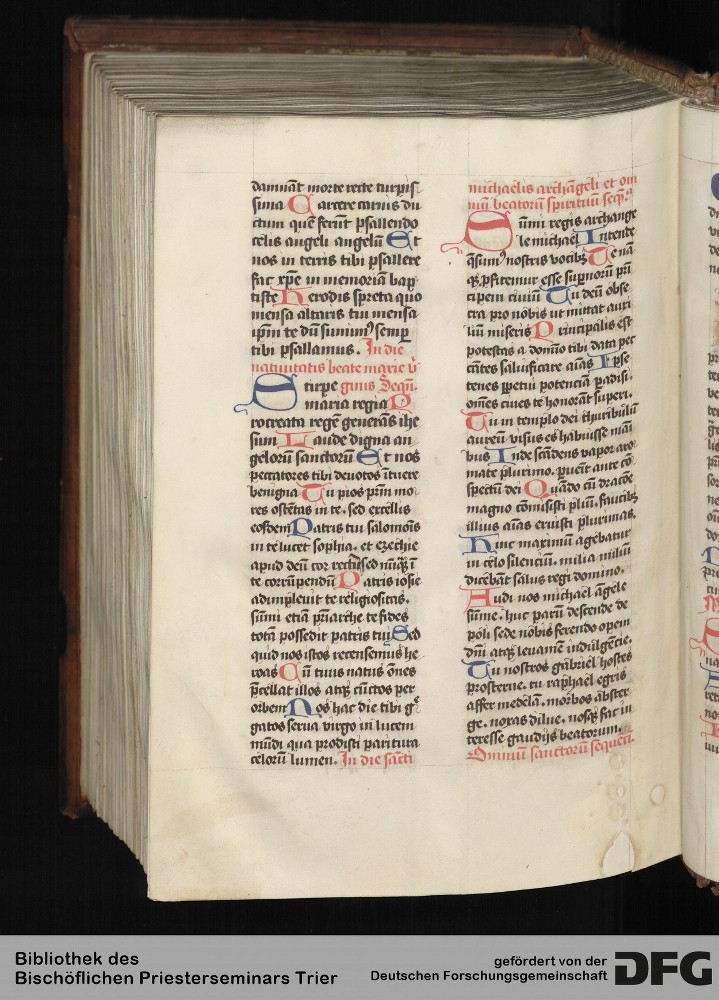 damnāt morte recte turpis
sima Carcere carnis du
ctum quē ferūt psallendo
celis angeli angelū Et
nos in terris tibi psallere
fac xp̄e in memoriam bap
tiste Herodis spreta quo
mensa altaris tui mensa
ip̄m te dū sumimꝰ semꝑ
tibi psallamus. In die
natiuitatis beate marie v̄
Stirpe ginis Seqn̄.
maria regia P
rocreata regē generās ihe
sum Laude digna an
gelorū sanctorū Et nos
peccatores tibi deuotos ītuere
benigna Tu pios pr̄m mo
res ostētas in te. sed excellis
eosdem Patris tui salomōis
in te lucet sophia. et ezechie
apud deū cor rectū sed nūqȝ ī
te corrūpendū Patris iosie
adimpleuit te religiositas.
sūmi etiā pr̄iarche te fides
totā possedit patris tui Sed
quid nos istos recensemus he
roas Cū tuus natus ōnes
p̄cellat illos atqȝ cūctos per
orbem Nos hac die tibi gͣ
gatos serua virgo in lucem
mūdi qua prodisti paritura
celorū lumen. In die sācti
michaelis archāgeli et om
niū beatorū spirituū seqn̄
Sūmi regis archange
le michael Intente
q̄sumꝰ nostris vocibꝫ Te nā
qȝ ꝓfitemur esse suꝑnorū prī
cipem ciuiū Tu deū obse
cra pro nobis ut mittat auxi
liū miseris Principalis est
potestas a domīo tibi data pec
cātes saluificare aīas Ipse
tenes ꝑpetui potenciā ꝑadisi.
omēs ciues te honorāt superi.
Tu in templo dei thuribulū
aureū visus es habuisse māi
bus Inde scādens vapor aro
mate plurimo. ꝑuēit ante cō
spectū dei Quādo cū dracōe
magno cōmisisti p̄liū. faucibꝫ
illius aīas eruisti plurimas.
Hinc maximū agebatur
in celo silenciū. milia miliū
dicebāt salus regi domino.
Audi nos michael āgele
sūme. huc parū descende de
poli sede nobis ferendo opem
dn̄i atqȝ leuamē indulgēcie.
Tu nostros gabriel hostes
prosterne. tu raphael egris
affer medelā. morbos abster
ge. noxas dilue. nosqȝ fac in
teresse gaudijs beatorum.
Omniū sanctorū sequen.
Bibliothek des
Bischöflichen Priesterseminars Trier
gefördert von der
Deutschen Forschungsgemeinschaft
DFG